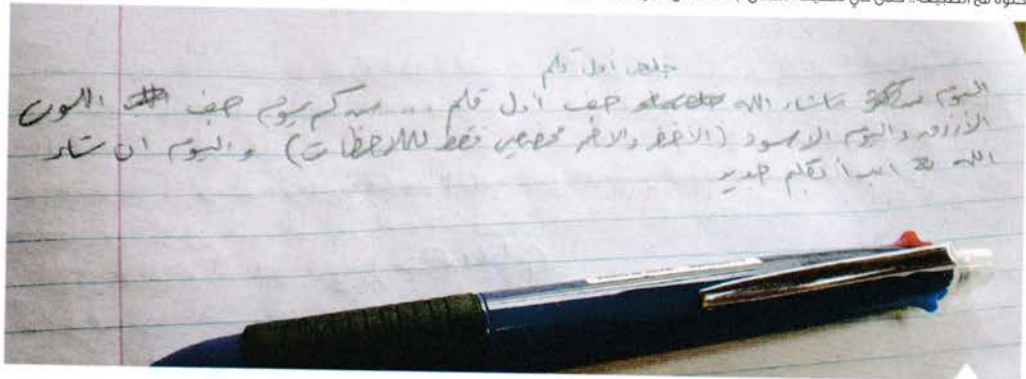 خلص أول قلم
اليوم ماشاء الله جف أول قلم ... من كم يوم جف اللون
الأزرق واليوم الاسود (الأخضر والاحمر مخصصين فقط للملاحظات) واليوم ان شاء
الله ابدأ بقلم جديد